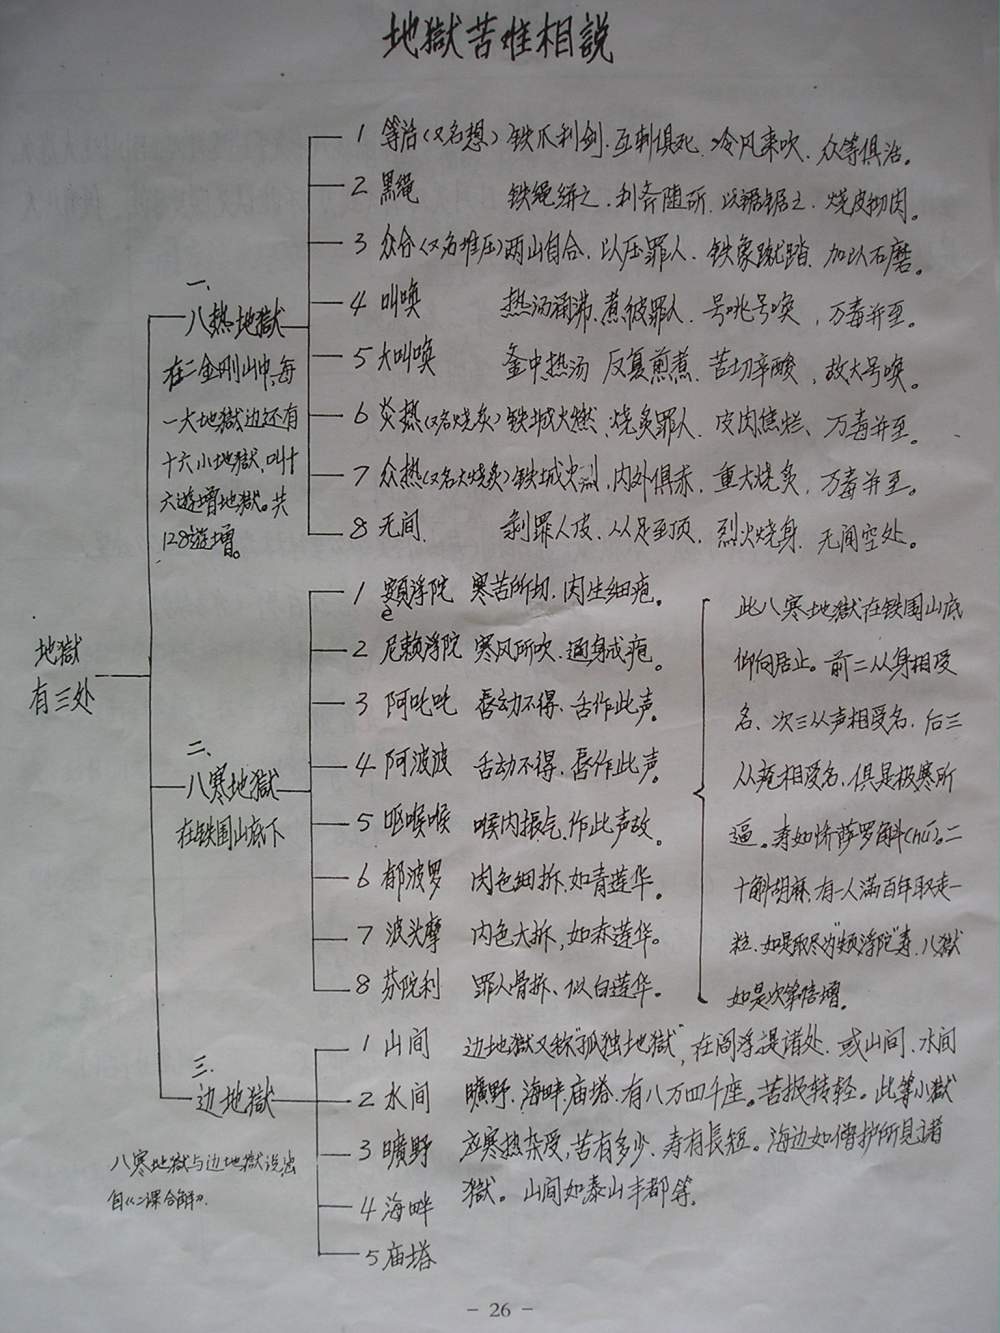 地獄苦难相説
地獄
有三处
一、
八熱地獄
在二金刚山中，每
一大地獄边还有
十六小地獄，叫十
六遊增地獄。共
128遊增。
1 等活（又名想）铁爪利剑、互刺俱死、冷风来吹、众等俱活。
2 黑绳 铁绳絣之、利斧随斫、以锯锯之、烧皮彻肉。
3 众合（又名堆压）两山自合、以压罪人、铁象蹴踏、加以石磨。
4 叫唤 热汤涌沸、煮彼罪人、号咷号唤，万毒并至。
5 大叫唤 釜中热汤 反复煎煮、苦切辛酸，故大号唤。
6 炎热（又名烧炙）铁城火燃、烧炙罪人、皮肉焦烂、万毒并至。
7 众热（又名大烧炙）铁城火烈，内外俱赤、重大烧炙，万毒并至。
8 无间、 剥罪人皮、从足至顶、烈火烧身、无间空处。
二、
八寒地獄
在铁围山底下
1 頞浮陀 寒苦所切、肉生细疱。
e
2 尼赖浮陀 寒风所吹、通身成疱。
3 阿吒吒 唇动不得、舌作此声。
4 阿波波 舌动不得、唇作此声。
5 呕喉喉 喉内振气，作此声故。
6 郁波罗 肉色细拆，如青莲华。
7 波头摩 肉色大拆，如赤莲华。
8 芬陀利 罪人骨拆、似白莲华。
此八寒地獄在铁围山底
仰向居止。前二从身相受
名、次三从声相受名，后三
从疮相受名，俱是极寒所
逼。寿如憍萨罗斛(hú)。二
十斛胡麻，有一人满百年取走一
粒、如是取尽为“頞浮陀”寿、八獄
如是次第倍增。
三、
边地獄
八寒地獄与边地獄说出
自《二课合解》.
1 山间
2 水间
3 曠野
4 海畔
5 庙塔
边地獄又称“孤独地獄”，在阎浮提诸处、或山间、水间
曠野、海畔、庙塔、有八万四千座。苦报转轻。此等小獄
亦寒热杂受，苦有多少、寿有長短。海边如僧护所见诸
獄。山间如泰山丰都等。
- 26 -